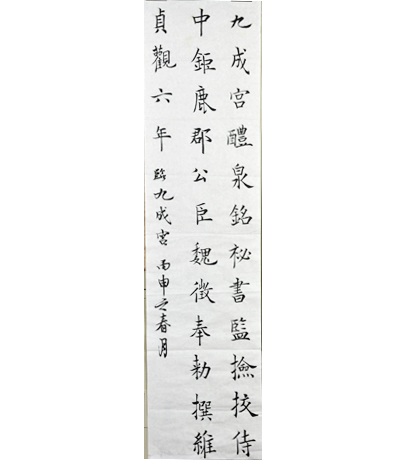 九成宮醴泉銘祕書監撿挍侍
中鉅鹿郡公臣魏徵奉勑撰維
貞觀六年 臨九成宮 丙申之春月